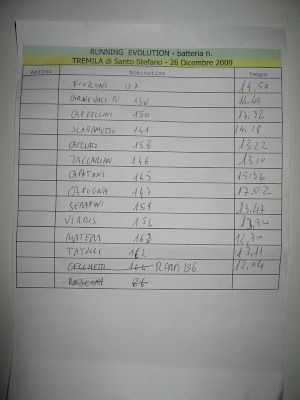 RUNNING EVOLUTION - batteria n.
TREMILA di Santo Stefano - 26 Dicembre 2009
Arrivo Nominativo Tempo
FIORIONI 14,50
CARNEVALI N 138 14,40
CAPPELLINI 150 14,32
SCARAMUZZO 141 14,18
153 13,22
ZACCARIAN 146 13,10
CAPATANI 145 15,36
CAROGNA 147 17,02
SERAFINI 151 13,47
VIRDIS 156
MATERA 163 12,30
TATULLI 162 13,11
CECCHETTI 166 136 12,04
86